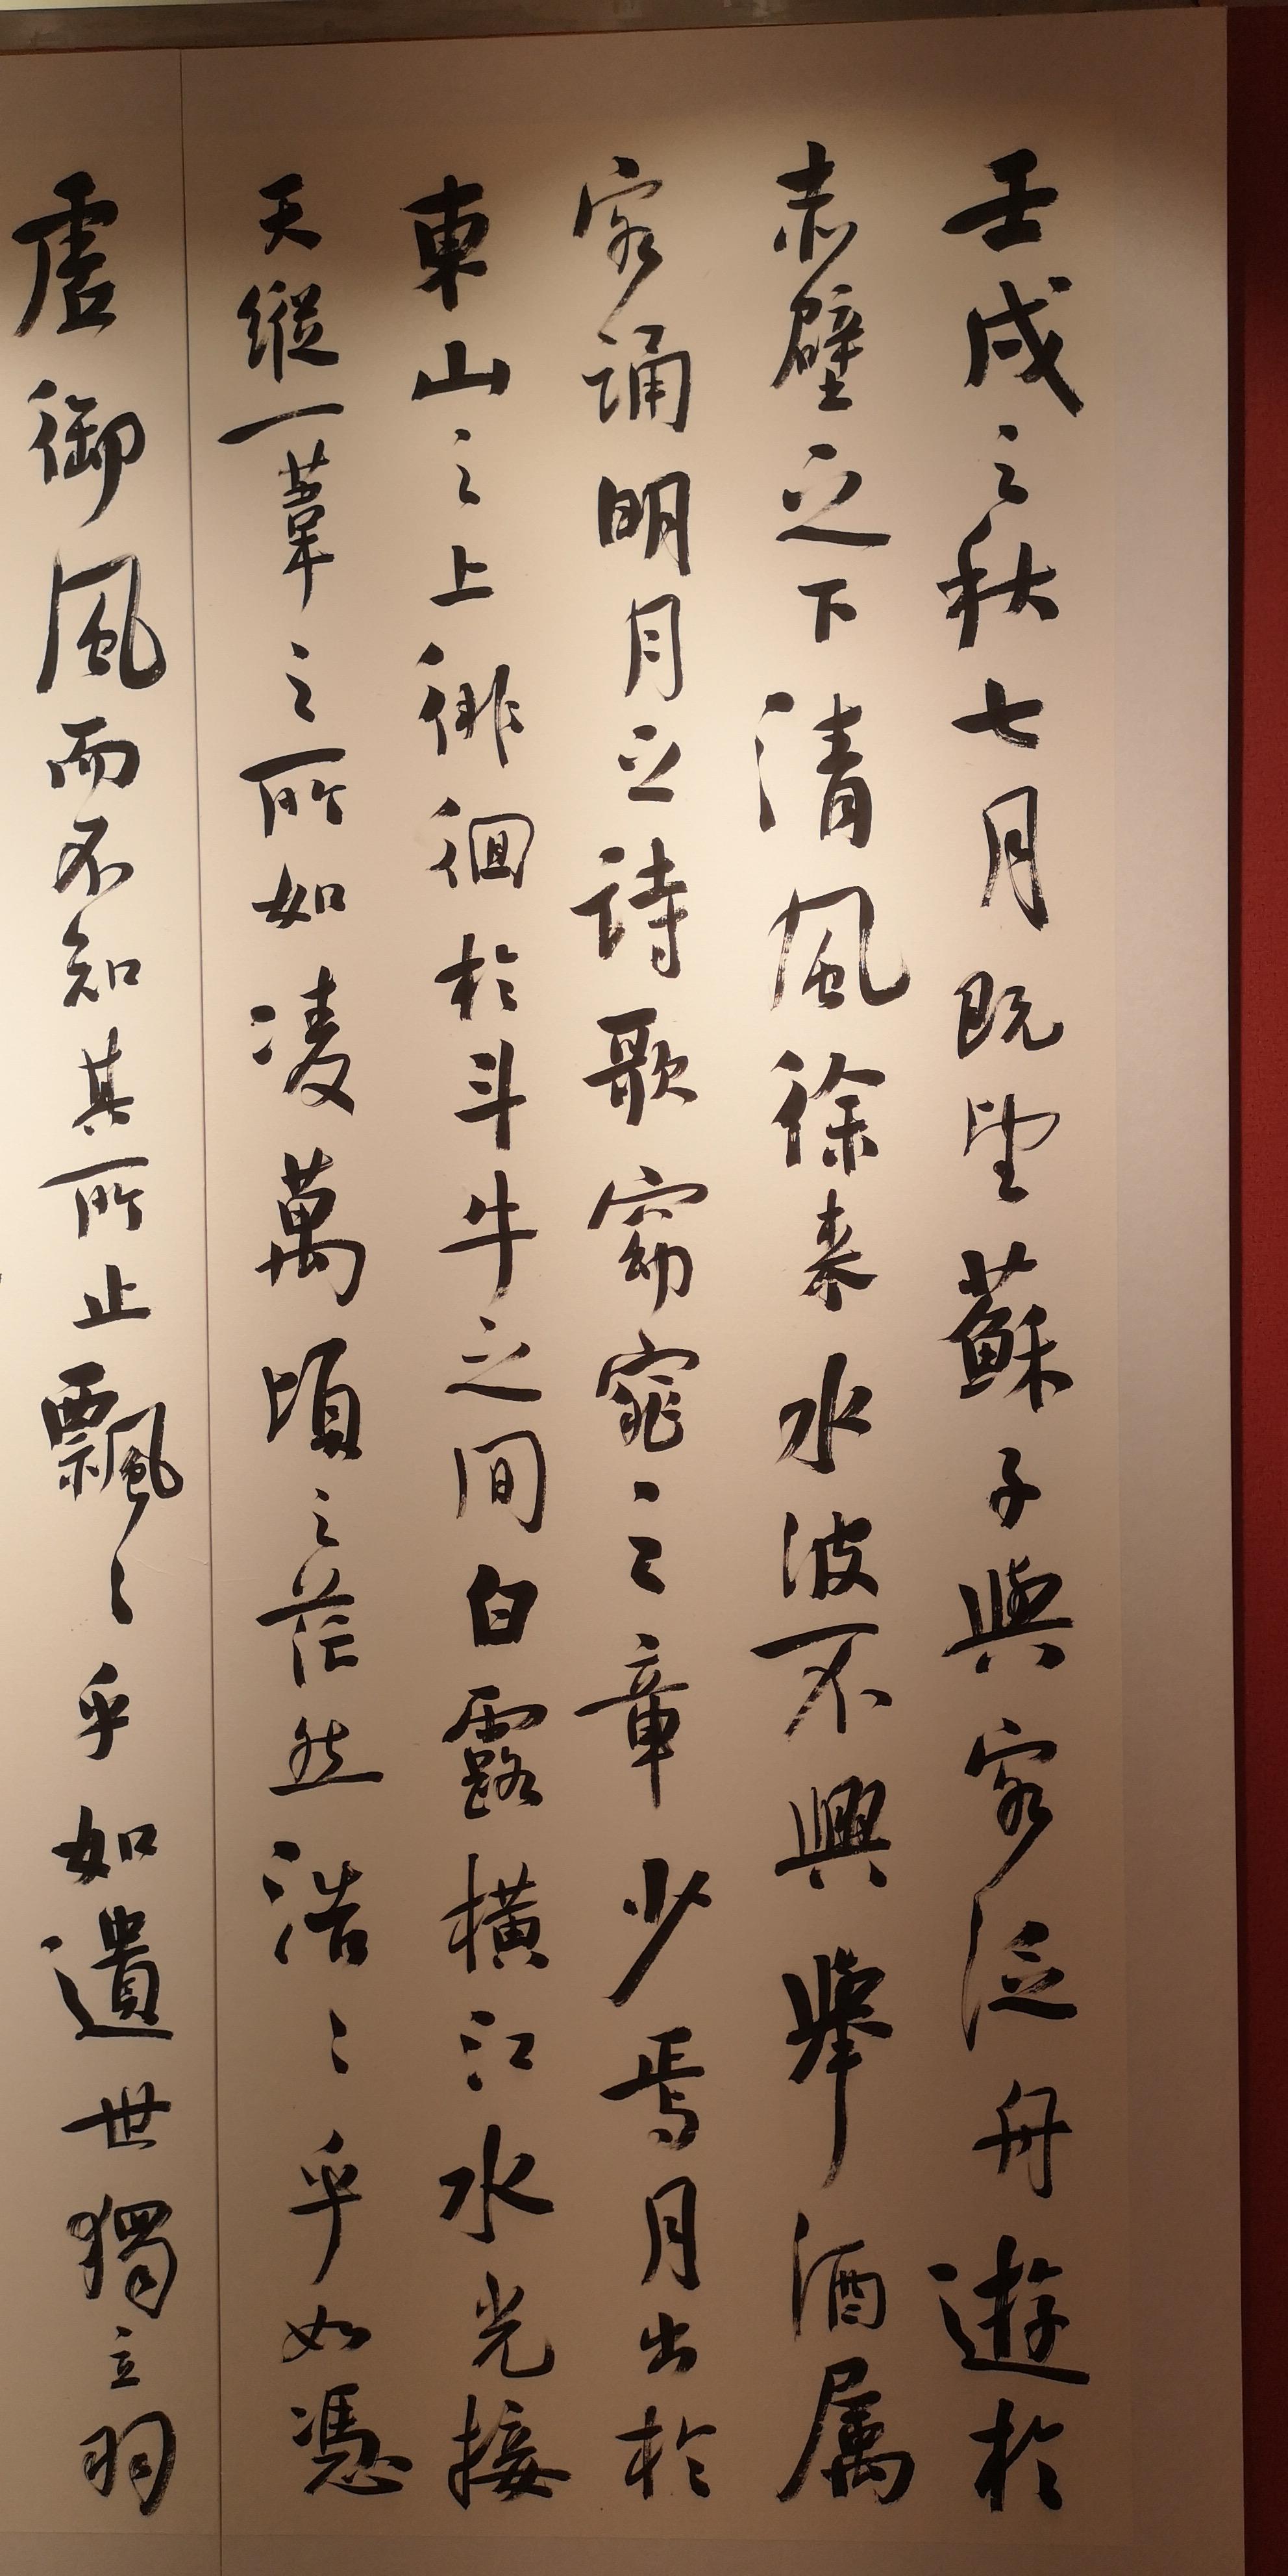 壬戌之秋七月既望蘇子與客泛舟遊於
赤壁之下清風徐来水波不興舉酒属
客誦明月之詩歌窈窕之章少焉月出於
東山之上徘徊於斗牛之间白露橫江水光接
天縱一葦之所如凌萬頃之茫然浩〻乎如憑
虛御風而不知其所止飄〻乎如遺世獨立羽